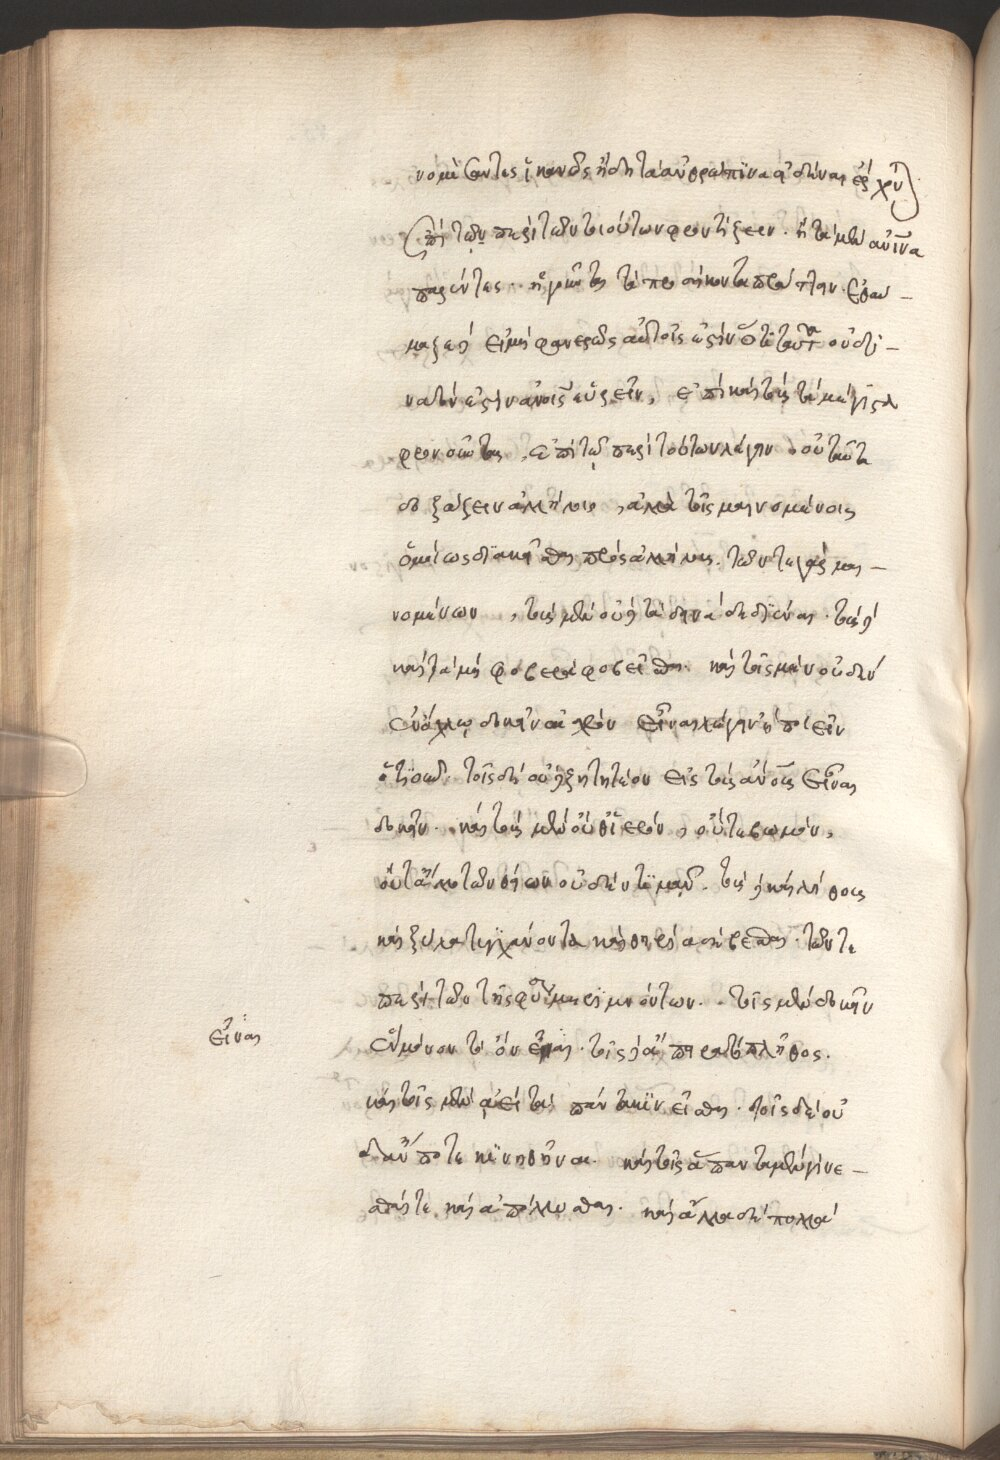 νομίσαντες ἱκανῶς ἤδη τὰ ἀνθρώπινα εἰδέναι ἔρχον
ἐπὶ τῷ περὶ τῶν τοιούτων φροντίζειν. ἢ τὰ μὲν ἀνινα
παρέντες. ἡγοῦνται τὰ προσήκοντα πράττειν. ἐθαύ-
μαζε δ' εἰ μὴ φανερῶς αὐτοῖς ἐστὶν ὅτι ταῦτα οὐ δυ-
νατόν ἐστιν ἀνοις εὑρεῖν, ἐπεὶ καὶ τοὺς τὰ μέγιστα
φρονοῦντας, ἐπὶ τῷ περὶ τούτων λέγειν οὐ ταῦτα
δοξάζειν ἀλλήλοις, ἀλλὰ τοῖς μαινομένοις
ὁμοίως διακεῖσθαι πρὸς ἀλλήλους. τῶν τε γὰρ μαι-
νομένων, τοὺς μὲν οὐδὲ τὰ δεινὰ δεδιέναι. τοὺς δὲ
καὶ τὰ μὴ φοβερὰ φοβεῖσθαι. καὶ τοῖς μὲν οὐδὲν
ἐν ὄχλῳ δοκεῖν αἰσχρὸν εἶναι λέγειν ἢ ποιεῖν
ὁτιοῦν. τοῖς δὲ οὐδ' ἐξητητέον εἰς τοὺς ἀνους εἶναι
δοκεῖν. καὶ τοὺς μὲν οὐθ' ἱερὸν, οὔτε βωμὸν,
οὔτ' ἄλλο τῶν θείων οὐδὲν τιμᾶν. τοὺς δὲ καὶ λίθους
καὶ ξύλα τυγχάνοντα καὶ θηρία σέβεσθαι. τῶν τε
περὶ τῶν τῆς φύσ μεριμνόντων. τοῖς μὲν δοκεῖν
ἓν μόνον τὸ ὂν εἶναι. τοῖς δ' ἄπειρα τὸ πλῆθος.
εἶναι
καὶ τοῖς μὲν ἀεὶ πάντα κινεῖσθαι. τοῖς δὲ οὐ
δὲ ἄν ποτε κινηθῆναι. καὶ τοῖς ἅπαντα μὲν γίνε-
σθαί τε καὶ ἀπόλλυσθαι. καὶ ἄλλα δὲ πολλὰ